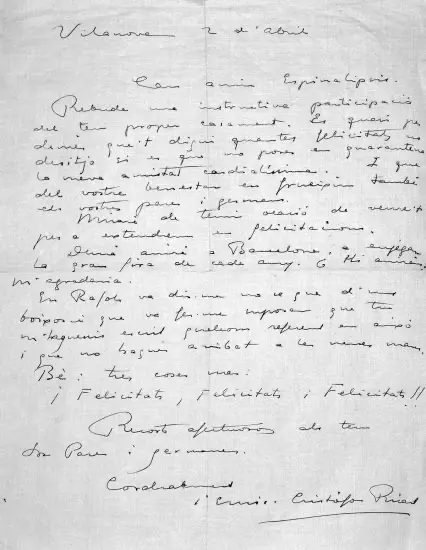 Vilanova 2 d'Abril
Car amic Espinalipsis.
Rebuda una instructiva participació
del teu proper casament. Es quasi per
demés que't digui quantes felicitats us
desitjo si es que no poses en quarantena
la meva amistat cordialíssima. I que
del vostre benestar en fruixin també
els vostres pares i germans.
de tenir ocasió de veure't
per a extendrem en felicitacions.
aniré a Barcelona, a
la gran fira de cada any. O
m'agradaria.
En Ràfols va dir-me no se que d'una
que va fer-me suposar que tu
m'haguessis escrit quelcom referent en això
i que no hagués arribat a les meves mans.
Bé: tres coses mes:
¡Felicitats, Felicitats, i Felicitats!!
Records afectuosos als teus
Pares i germanes.
Cordialment
Cristòfor Ricart